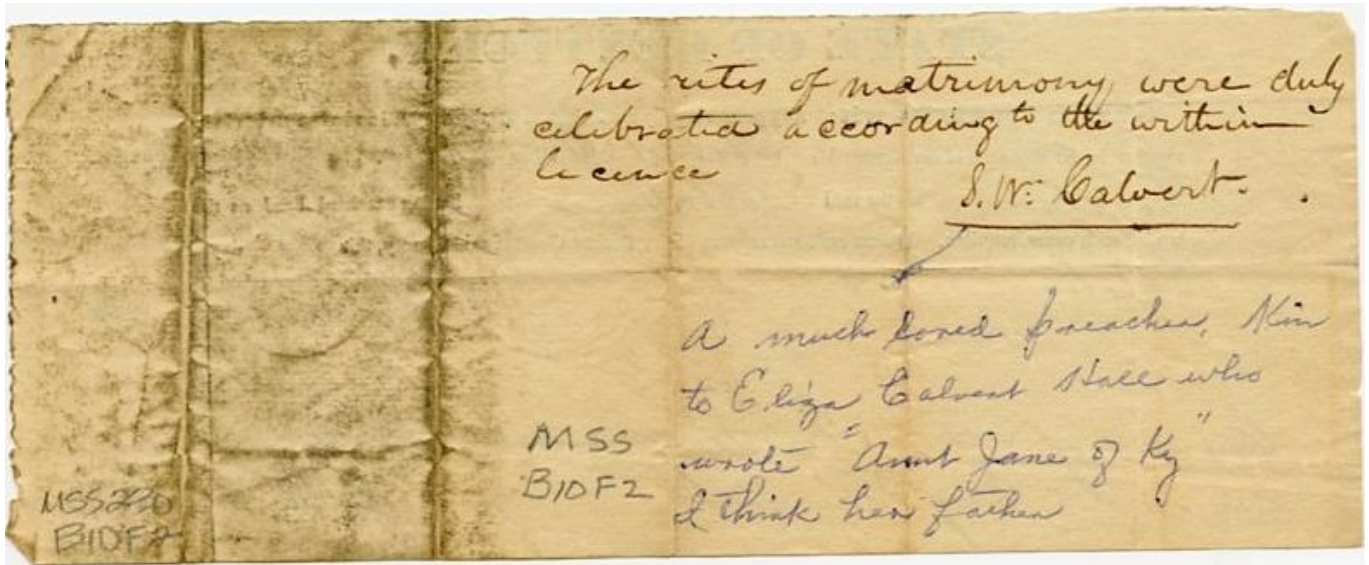 The rites of matrimony were duly
celebrated according to the within
licence
S. W. Calvert.
A much loved preacher, Kin
to Eliza Calvert Hall who
wrote "Aunt Jane of Ky"
I think her father
MSS
B10F2
MSS220
B10F2